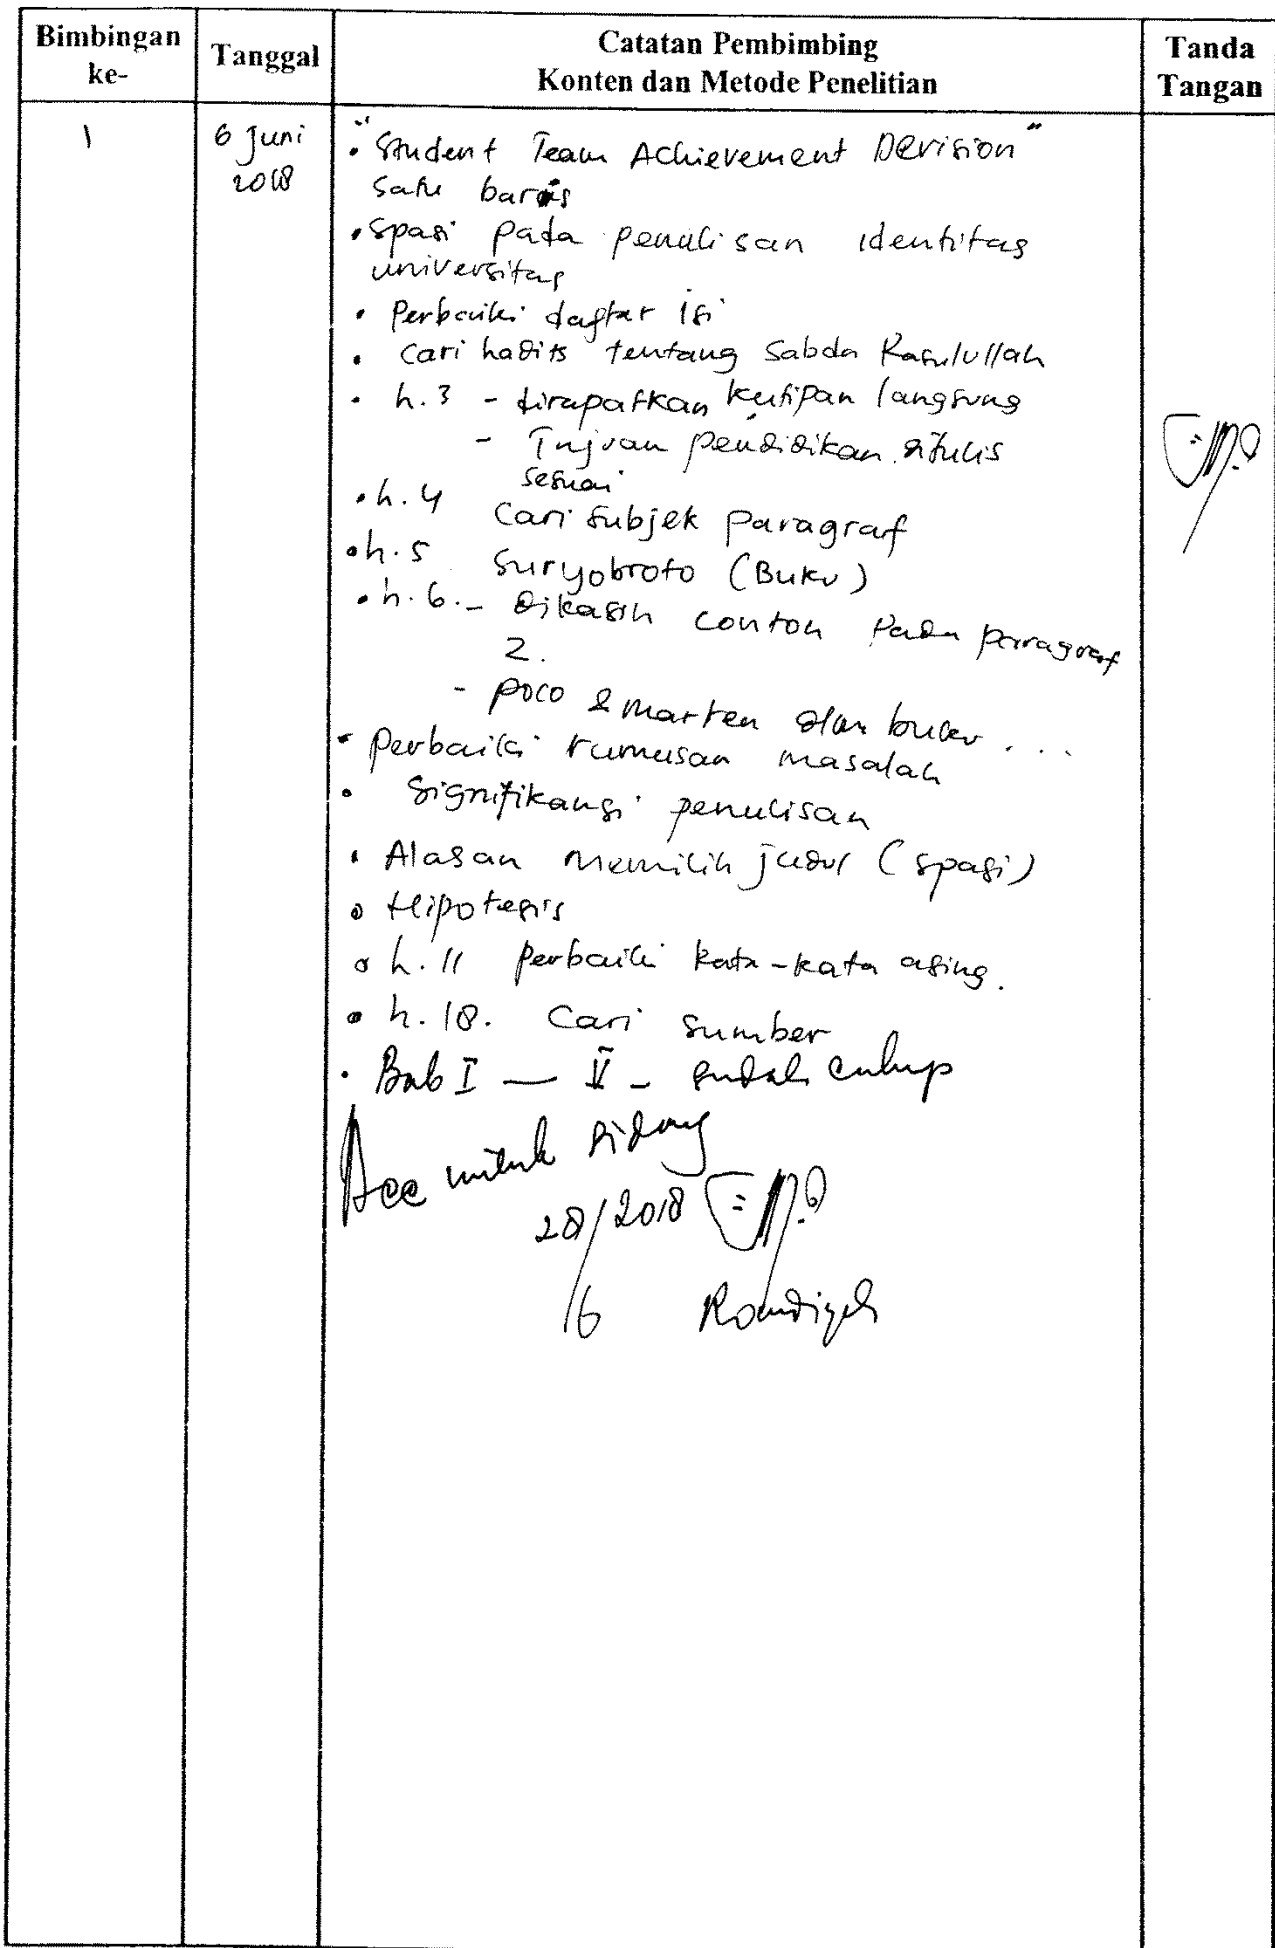 Bimbingan ke-
Tanggal
Catatan Pembimbing
Konten dan Metode Penelitian
Tanda Tangan
1
6 Juni
2018
• "Student Team Achievement Devision"
satu baris
• Spasi pada penulisan identitas
universitas
• Perbaiki daftar isi
• Cari hadits tentang Sabda Rasulullah
• h.3 - dirapatkan kutipan langsung
- Tujuan pendidikan ditulis
sesuai
• h.4 Cari Subjek paragraf
• h.5 Suryobroto (Buku)
• h.6. - Dikasih contoh pada paragraf
2.
- poco & marten dlm buku...
• perbaiki rumusan masalah
• Signifikansi penulisan
• Alasan memilih judul (spasi)
• Hipotesis
• h.11 perbaiki kata-kata asing.
• h.18. Cari sumber
• Bab I — V - sudah cukup
Acc untuk sidang
28/2018
/6